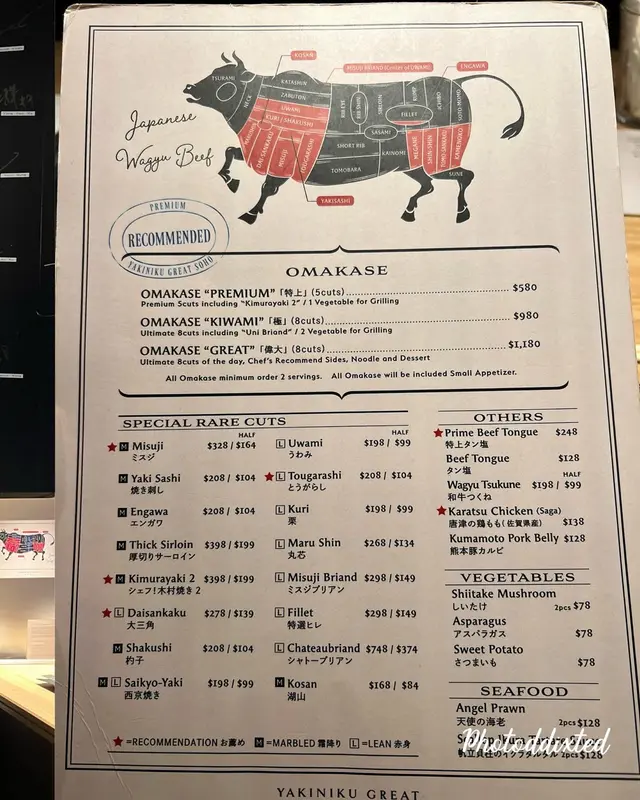 KOSAN
MISUJI BRIAND (Center of UWAMI)
ENGAWA
TSURAMI
NECK
KATASHIN
ZABUTON
UWAMI
KURI / SHAKUSHI
DAISANKAKU
MISUJI
TOUGARASHI
RIB EYE
RIB SHIN
SIRLOIN
FILLET
SASAMI
SHORT RIB
KAINOMI
TOMOBARA
MEGANE
SHIN-SHIN
TOMO SANKAKU
KAMENOKO
SUNE
YAKISASHI
Japanese
Wagyu Beef
PREMIUM
RECOMMENDED
YAKINIKU GREAT SOHO
OMAKASE
OMAKASE "PREMIUM"「特上」(5cuts) $580
Premium 5cuts including "Kimurayaki 2" / 1 Vegetable for Grilling
OMAKASE "KIWAMI"「極」(8cuts) $980
Ultimate 8cuts including "Uni Briand" / 2 Vegetable for Grilling
OMAKASE "GREAT"「偉大」(8cuts) $1,180
Ultimate 8cuts of the day, Chef's Recommend Sides, Noodle and Dessert
All Omakase minimum order 2 servings. All Omakase will be included Small Appetizer.
SPECIAL RARE CUTS
HALF
M Misuji $328 / $164
ミスジ
M Yaki Sashi $208 / $104
焼き刺し
M Engawa $208 / $104
エンガワ
M Thick Sirloin $398 / $199
厚切りサーロイン
M Kimurayaki 2 $398 / $199
シェフ!木村焼き2
L Daisankaku $278 / $139
大三角
M Shakushi $208 / $104
杓子
M L Saikyo-Yaki $198 / $99
西京焼き
HALF
L Uwami $198 / $99
うわみ
L Tougarashi $208 / $104
とうがらし
L Kuri $198 / $99
栗
L Maru Shin $268 / $134
丸芯
L Misuji Briand $298 / $149
ミスジブリアン
L Fillet $298 / $149
特選ヒレ
L Chateaubriand $748 / $374
シャトーブリアン
M Kosan $168 / $84
湖山
★=RECOMMENDATION お薦め M=MARBLED 霜降り L=LEAN 赤身
OTHERS
Prime Beef Tongue $248
特上タン塩
Beef Tongue $128
タン塩
HALF
Wagyu Tsukune $198 / $99
和牛つくね
Karatsu Chicken (Saga)
唐津の鶏もも(佐賀県産) $138
Kumamoto Pork Belly $128
熊本豚カルビ
VEGETABLES
Shiitake Mushroom
しいたけ 2pcs $78
Asparagus
アスパラガス $78
Sweet Potato
さつまいも $78
SEAFOOD
Angel Prawn
天使の海老 2pcs $128
帆立貝柱のイクラタルタル 2pcs $128
Photoddixted
YAKINIKU GREAT